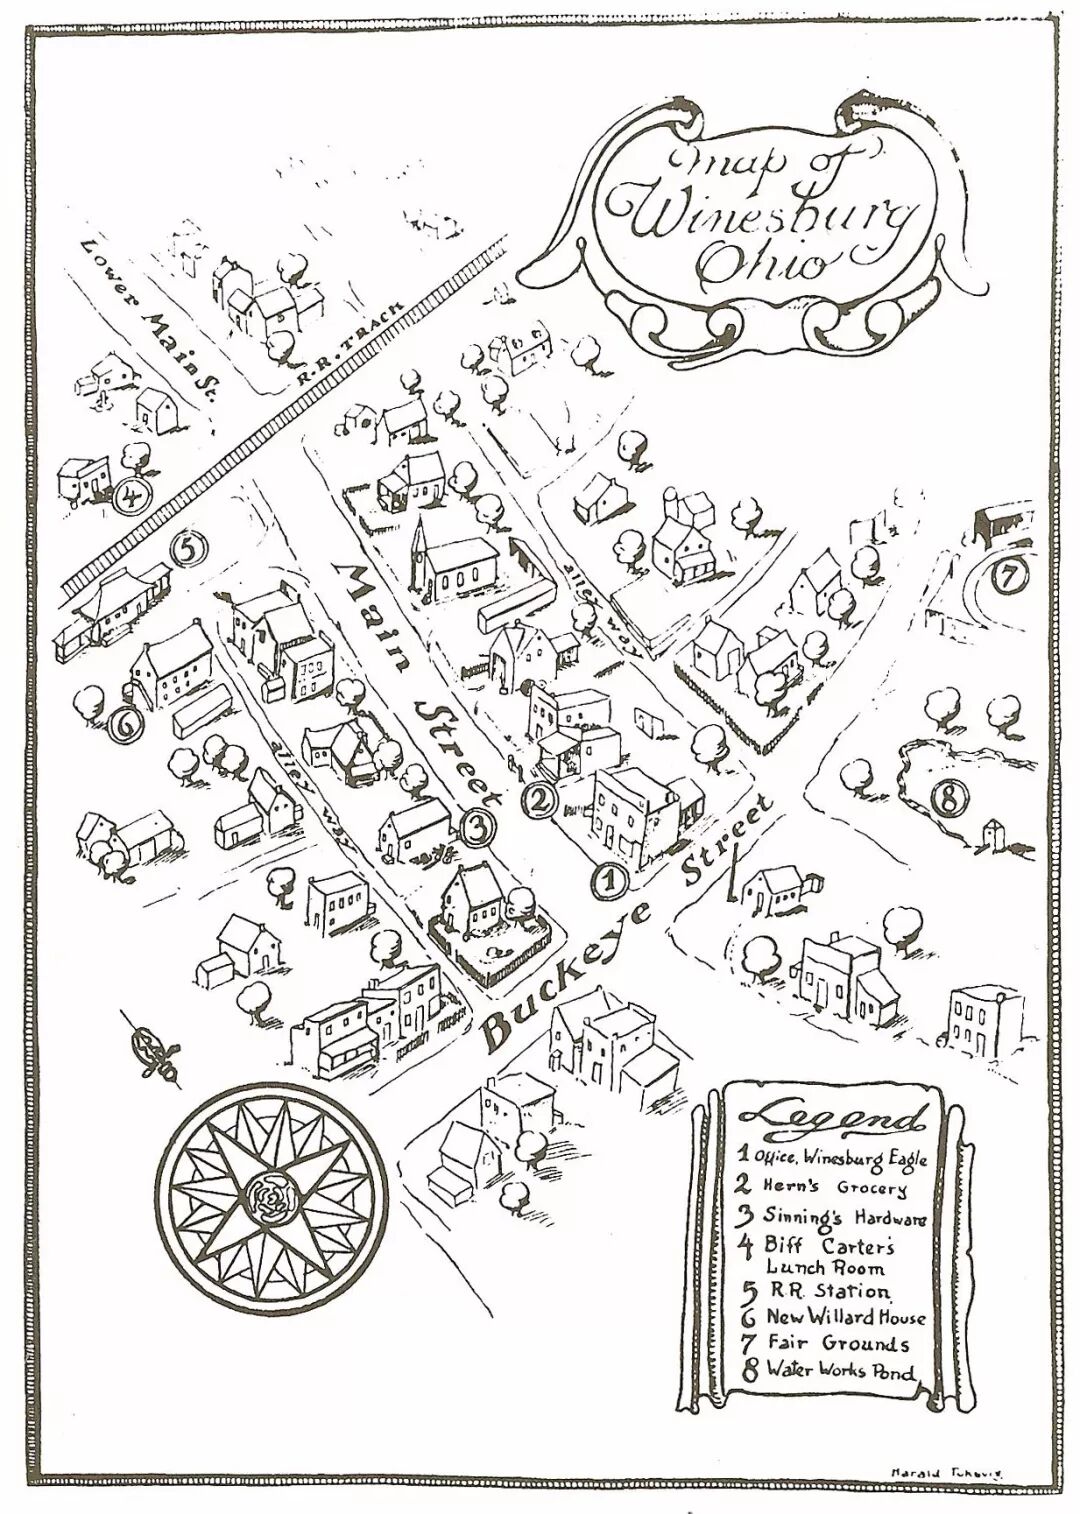 map of
Winesburg
Ohio
Lower Main St.
R.R. TRACK
4
5
Main Street
alley way
7
6
alley way
8
2
3
1
Buckeye Street
Legend
1 Office, Winesburg Eagle
2 Hern's Grocery
3 Sinning's Hardware
4 Biff Carter's
Lunch Room
5 R.R. Station
6 New Willard House
7 Fair Grounds
8 Water Works Pond
Harald